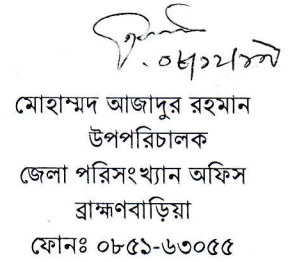 মোহাম্মদ আজাদুর রহমান
উপপরিচালক
জেলা পরিসংখ্যান অফিস
ব্রাহ্মণবাড়িয়া
ফোনঃ ০৮৫১-৬৩০৫৫